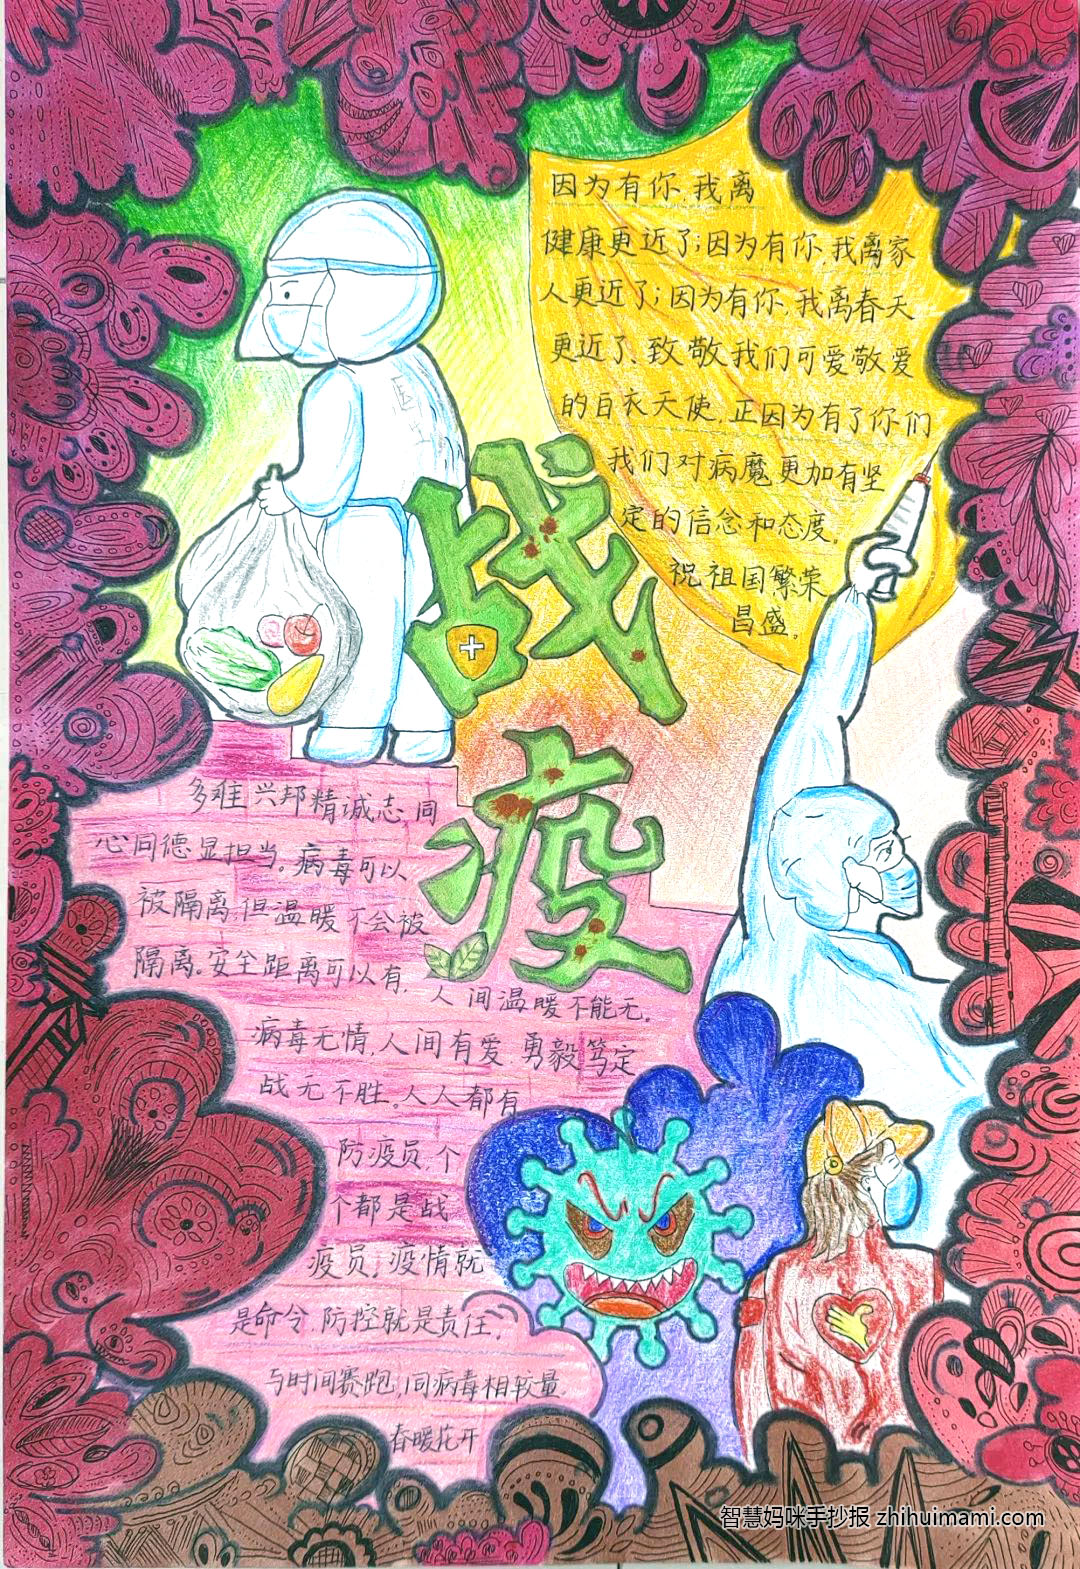 因为有你,我离
健康更近了;因为有你,我离家
人更近了;因为有你,我离春天
更近了、致敬我们可爱敬爱
的白衣天使,正因为有了你们
我们对病魔更加有坚
定的信念和态度。
祝祖国繁荣
昌盛。
医
战
疫
多难兴邦精诚志,同
心同德显担当。病毒可以
被隔离,但温暖不会被
隔离。安全距离可以有,
人间温暖不能无。
病毒无情,人间有爱,勇毅笃定
战无不胜。人人都有
防疫员,个
个都是战
疫员;疫情就
是命令,防控就是责任,
与时间赛跑,同病毒相较量,
春暖花开
智慧妈咪手抄报 zhihuimami.com